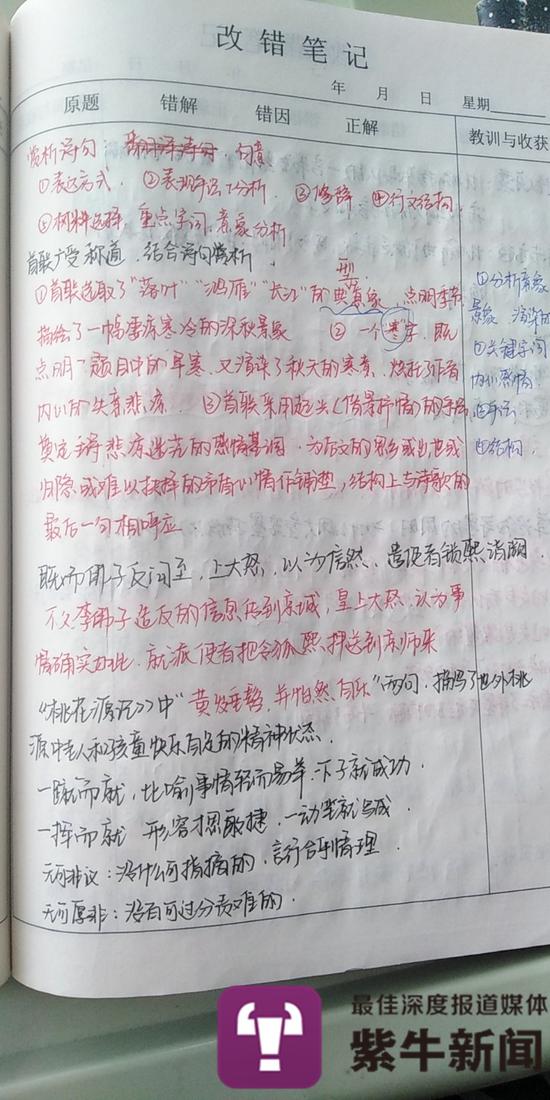 改错笔记
年 月 日 星期
原题 错解 错因 正解 教训与收获
赏析诗句 句意
①表达方式. ②表现手法分析. ③修辞 ④行文结构.
⑤材料选择 重点字词. 意象分析
首联广受称道. 结合诗句赏析. 型
①首联选取了“落叶”“鸿雁”“长江”的典意象, 点明季节 ①分析意象
描绘了一幅萧疏寒冷的深秋景象 ② 一个寒字, 既 景象
点明了题目中的早寒. 又渲染了秋天的寒意. 烘托了作者 ②关键字词
内心的失意悲凉. ③首联采用起兴(借景抒情)的手法 内心感情
奠定 悲凉 的感情基调. 为后文的 或 ③手法
归隐或难以抉择的矛盾心情作铺垫, 结构上与诗歌的 ④结构.
最后一句相呼应
既而佛子反问至, 上大怒, 以为信然, 遣使者锁熙诣阙.
不久李佛子造反的信息传到京城, 皇上大怒, 认为事
情确实如此. 就派使者把令狐熙押送到京师来
《桃花源记》中“黄发垂髫, 并怡然自乐”两句, 描写了世外桃
源中老人和孩童快乐自足的精神状态.
一蹴而就, 比喻事情轻而易举. 一下子就成功.
一挥而就 形容才思敏捷. 一动笔就写成.
无可非议: 没什么可指摘的. 言行合乎情理.
无可厚非: 没有可过分责难的.
最佳深度报道媒体
紫牛新闻